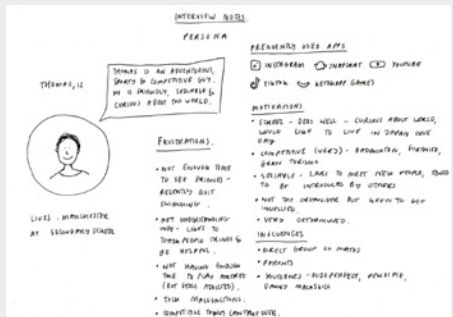 INTERVIEW NOTES
PERSONA
THOMAS, 12
THOMAS IS AN ADVENTUROUS,
SPORTY & COMPETITIVE GUY.
HE IS FRIENDLY, SOCIABLE &
CURIOUS ABOUT THE WORLD.
LIVES - MANCHESTER
AT SECONDARY SCHOOL
FRUSTRATIONS.
• NOT ENOUGH TIME
TO SEE FRIENDS -
RECENTLY QUIT
SWIMMING.
• NOT UNDERSTANDING
- LIKES TO
TEACH PEOPLE THINGS &
BE HELPFUL.
• NOT HAVING ENOUGH
TIME TO PLAY
(BUT FEELS ADDICTED).
• TECH MALFUNCTIONS.
• COMPETITIVE THINGS CAN TAKE OVER.
FREQUENTLY USED APPS
INSTAGRAM SNAPCHAT YOUTUBE
TIKTOK KETCHAPP GAMES
MOTIVATIONS
• SCHOOL - DOES WELL - CURIOUS ABOUT WORLD,
WOULD LIKE TO LIVE IN JAPAN ONE
DAY.
• COMPETITIVE (VERY) - BADMINTON, FORTNITE,
GRAN TURISMO
• SOCIABLE - LIKES TO MEET NEW PEOPLE,
TO BE INTRODUCED BY OTHERS
• NOT TOO ORGANISED BUT KEEN TO GET
INVOLVED.
• VERY DETERMINED.
INFLUENCES
• DIRECT GROUP OF MATES
• PARENTS
• YOUTUBERS - DUDE PERFECT, PEWDIEPIE,
DANNY MACASKILL